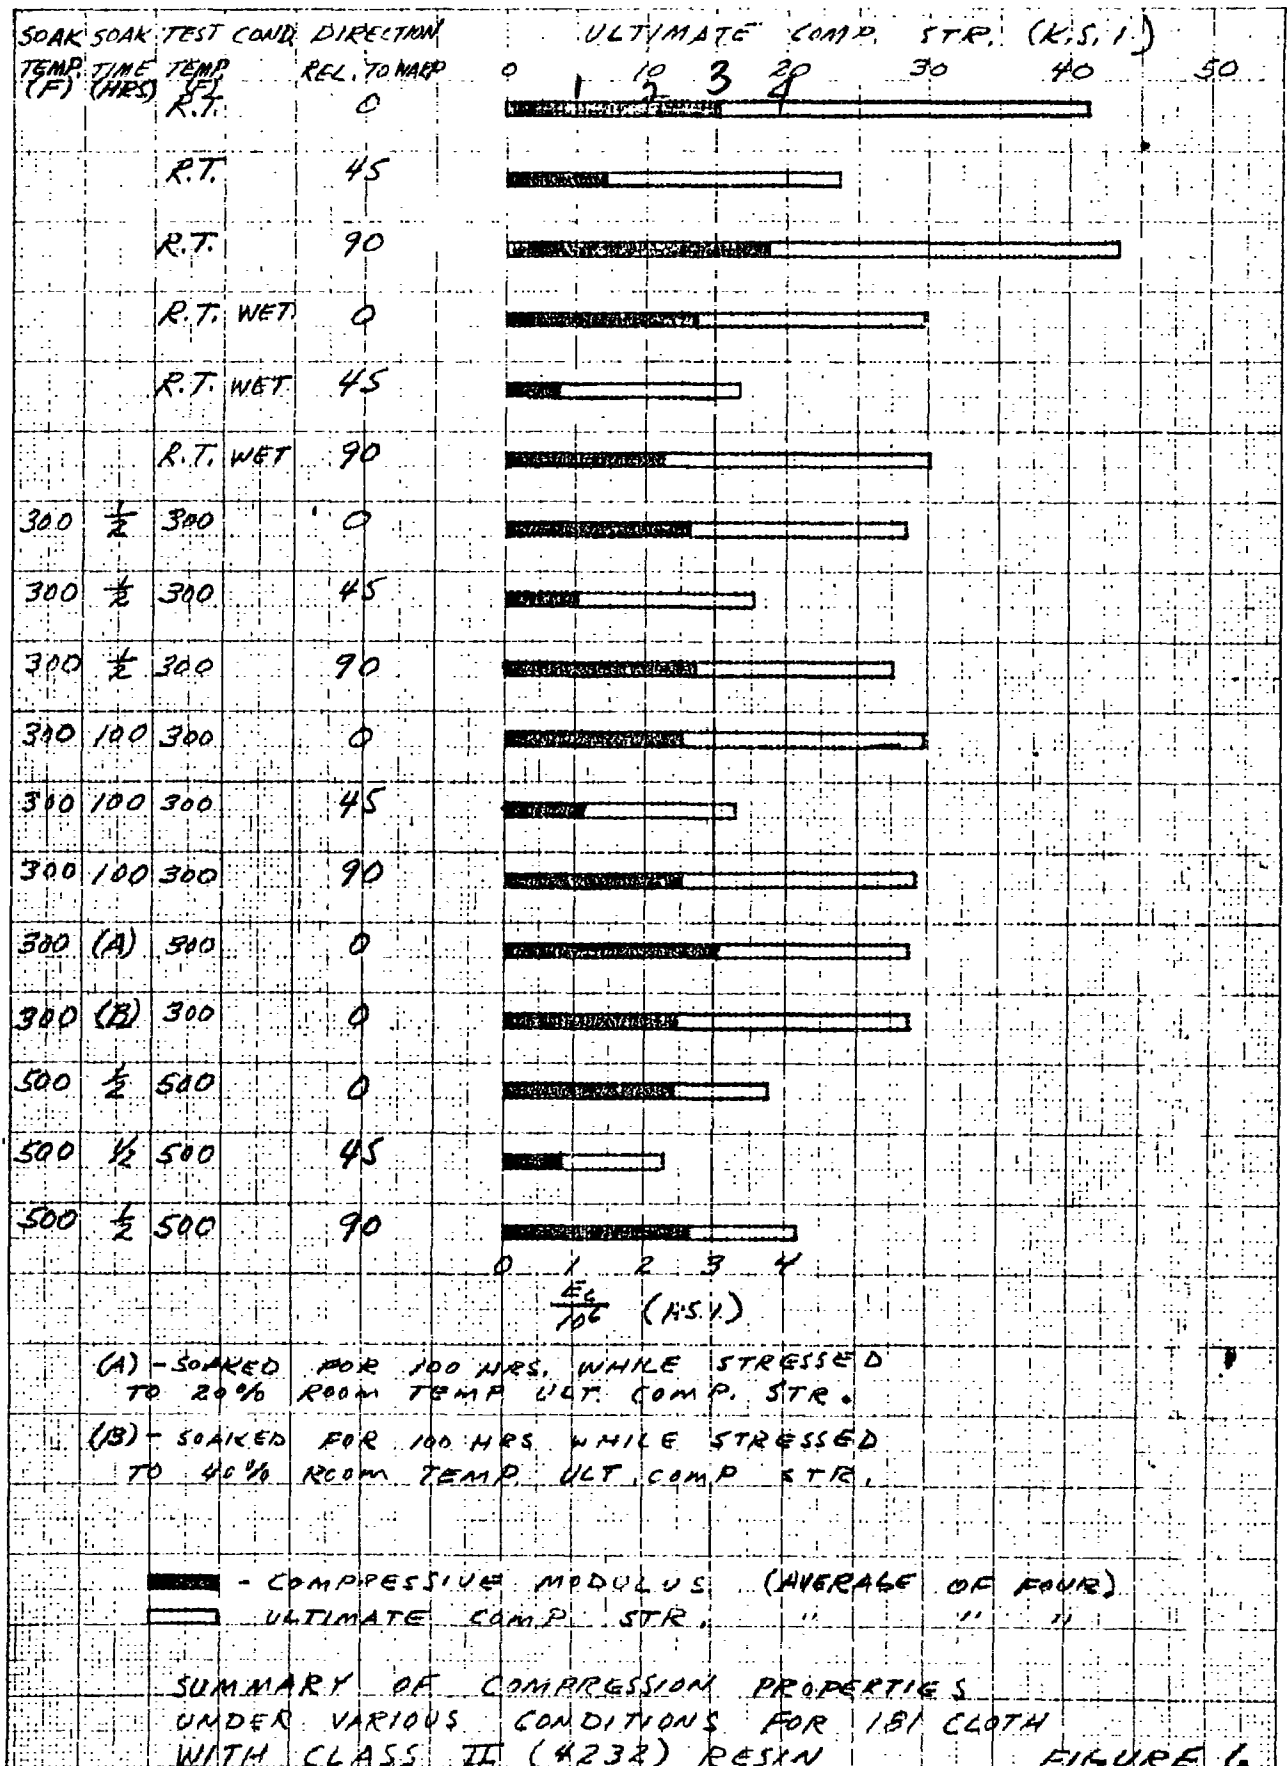 SOAK SOAK TEST COND. DIRECTION ULTIMATE COMP. STR. (K.S.I.)
TEMP. TIME TEMP. REL. TO WARP 0 10 20 30 40 50
(F) (HRS) (F) 1 2 3 4
R.T. 0
R.T. 45
R.T. 90
R.T. WET 0
R.T. WET 45
R.T. WET 90
300 1/2 300 0
300 1/2 300 45
300 1/2 300 90
300 100 300 0
300 100 300 45
300 100 300 90
300 (A) 300 0
300 (B) 300 0
500 1/2 500 0
500 1/2 500 45
500 1/2 500 90
0 1 2 3 4
(A) - SOAKED FOR 100 HRS. WHILE STRESSED
TO 20% ROOM TEMP ULT. COMP. STR.
(B) - SOAKED FOR 100 HRS WHILE STRESSED
TO 40% ROOM TEMP. ULT. COMP STR.
- COMPRESSIVE MODULUS (AVERAGE OF FOUR)
ULTIMATE COMP. STR. " " "
SUMMARY OF COMPRESSION PROPERTIES
UNDER VARIOUS CONDITIONS FOR 181 CLOTH
WITH CLASS II (4232) RESIN FIGURE